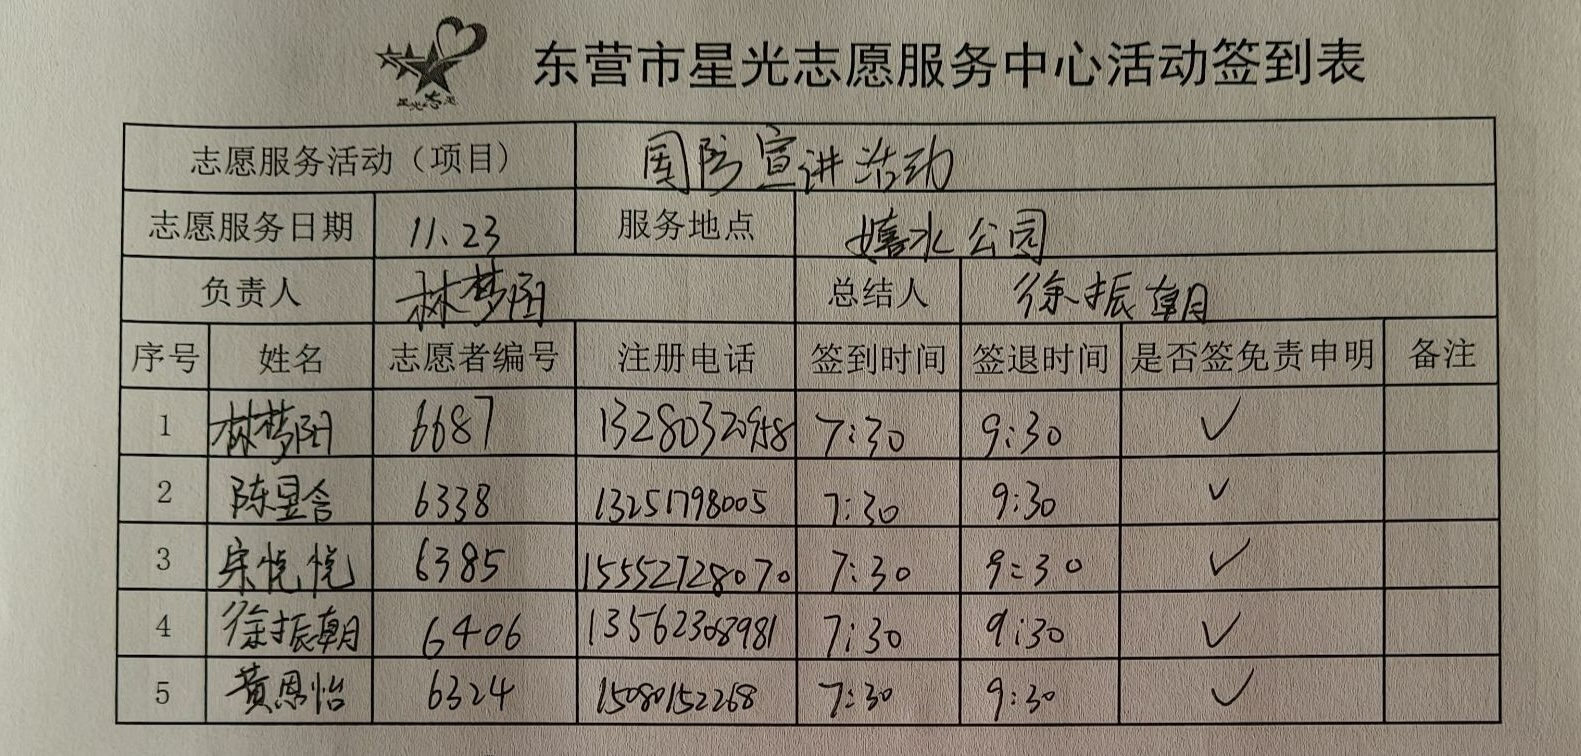 星光志愿
东营市星光志愿服务中心活动签到表
志愿服务活动（项目） 国防宣讲活动
志愿服务日期 11.23 服务地点 嬉水公园
负责人 林梦阳 总结人 徐振朝
序号 姓名 志愿者编号 注册电话 签到时间 签退时间 是否签免责申明 备注
1 林梦阳 6687 13280320958 7:30 9:30 ✓
2 陈昱含 6338 13251798005 7:30 9:30 ✓
3 宋悦悦 6385 15552728070 7:30 9:30 ✓
4 徐振朝 6406 13562308981 7:30 9:30 ✓
5 黄恩怡 6324 15080152268 7:30 9:30 ✓